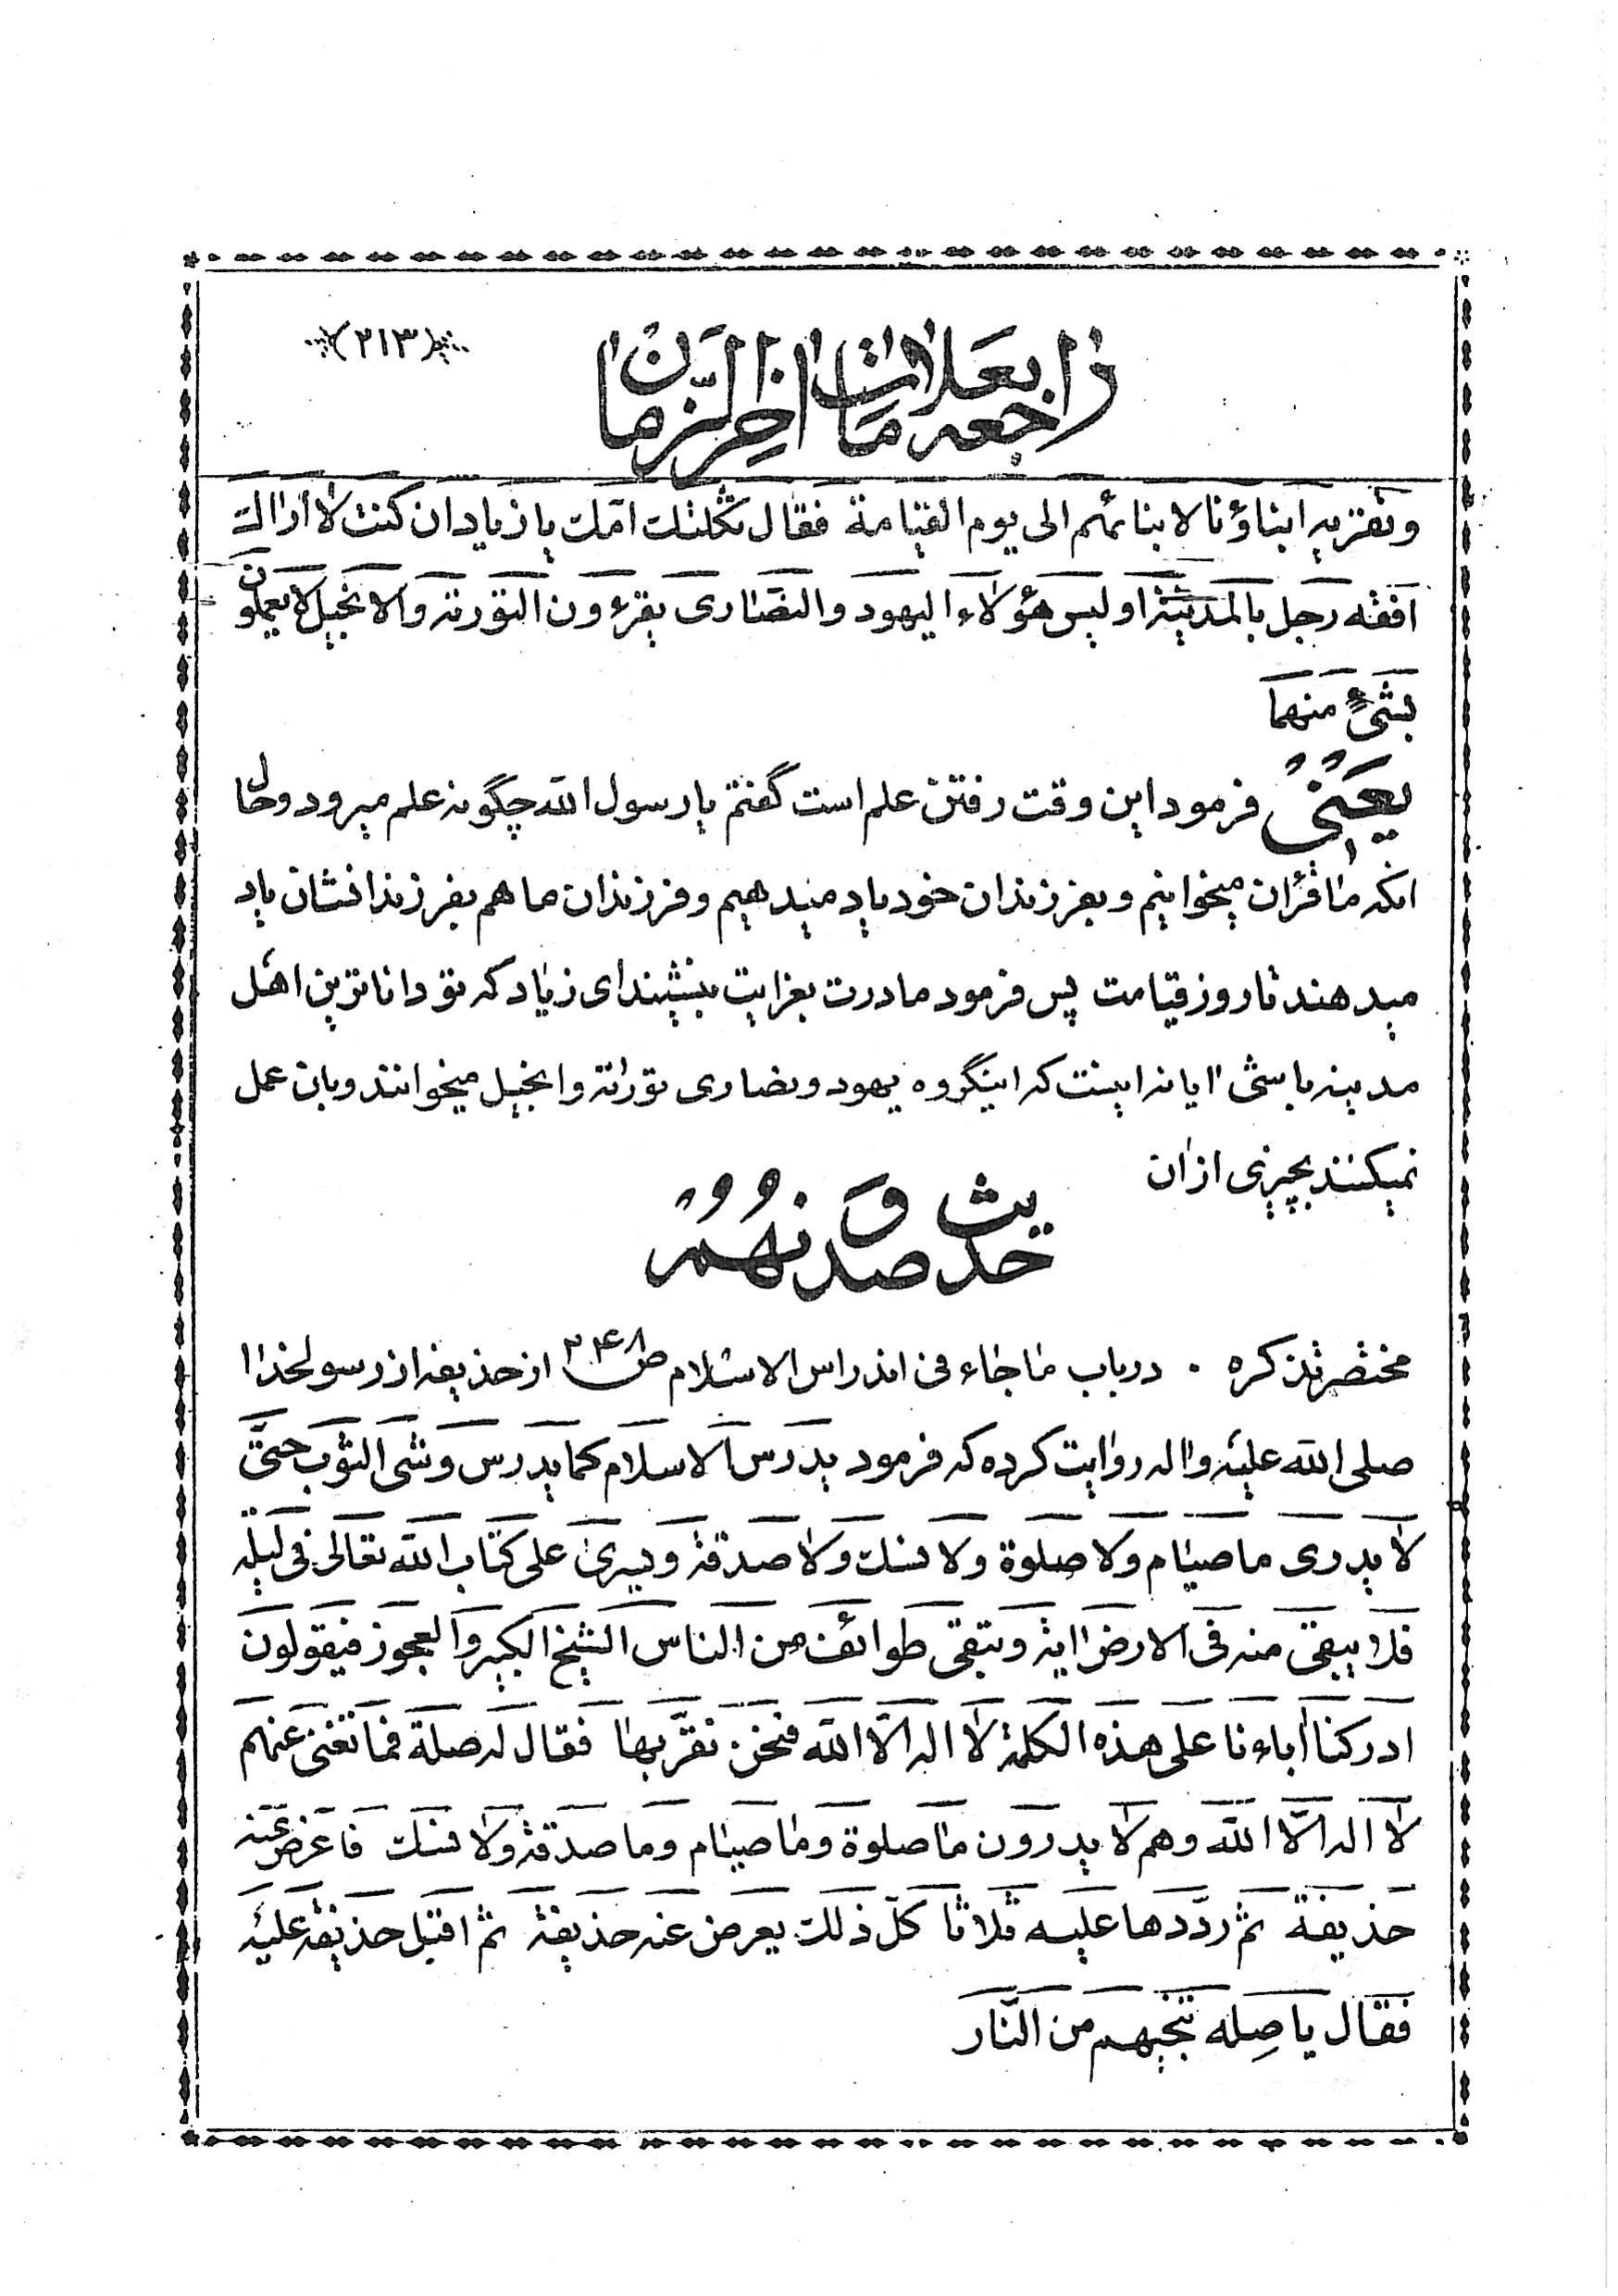 (۲۱۳)
راجعه بعلامات اخر الزّمان
وتقریه ابناؤنا لابنائهم الی یوم القیامة فقال ثکلتک امّک یا زیاد ان کنت لا اراک
افقه رجل بالمدینة اولیس هؤلاء الیهود والنّصاری یقرءون التوریة والانجیل لا یعملون
بشیءٍ منهما
یعنی فرمود این وقت رفتن علم است گفتم یا رسول الله چگونه علم میرود وحال
انکه ما قرآن میخوانیم وبفرزندان خود یاد میدهیم وفرزندان ما هم بفرزندانشان یاد
میدهند تا روز قیامت پس فرمود مادرت بعزایت بنشیند ای زیاد که تو داناترین اهل
مدینه باشی ایا نه اینست که اینگروه یهود ونصاری توراة وانجیل میخوانند وبان عمل
نمیکنند بچیزی ازان
حدیث صد و نهم
مختصر تذکره . در باب ما جاء فی اندراس الاسلام ص۲۴۸ از حذیفه از رسولخدا
صلی الله علیه واله روایت کرده که فرمود یدرس الاسلام کما یدرس وشی الثوب حتّی
لا یدری ما صیام ولا صلوة ولا نسک ولا صدقة ویسری علی کتاب الله تعالی فی لیلة
فلا یبقی منه فی الارض ایة وتبقی طوائف من الناس الشیخ الکبیر والعجوز فیقولون
ادرکنا اباءنا علی هذه الکلمة لا اله الّا الله فنحن نقرّ بها فقال له صلة فما تغنی عنهم
لا اله الّا الله وهم لا یدرون ما صلوة وما صیام وما صدقة ولا نسک فاعرض عنه
حذیفة ثم ردّدها علیه ثلاثا کلّ ذلک یعرض عنه حذیفة ثم اقبل حذیفة علیه
فقال یا صِله تنجیهم من النّار